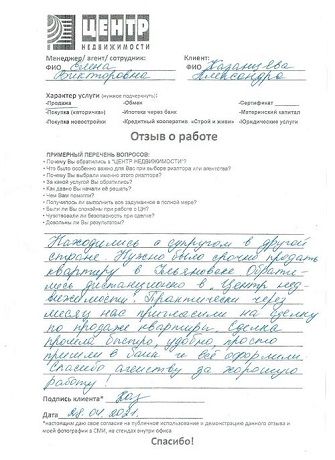 ЦЕНТР
НЕДВИЖИМОСТИ
Менеджер/ агент/ сотрудник: Клиент:
ФИО Елена ФИО Казанцева
Викторовна Александра
Характер услуги (нужное подчеркнуть):
-Продажа -Обмен -Сертификат
-Покупка (вторичка) -Ипотека через банк -Материнский капитал
-Покупка новостройки -Кредитный кооператив «Строй и живи» -Юридические услуги
Отзыв о работе
ПРИМЕРНЫЙ ПЕРЕЧЕНЬ ВОПРОСОВ:
• Почему Вы обратились в "ЦЕНТР НЕДВИЖИМОСТИ"?
• Что было особенно важно для Вас при выборе риэлтора или агентства?
• Почему Вы выбрали именно этого риэлтора?
• За какой услугой Вы обратились?
• Как давно Вы начали её решать?
• Чем Вам помогли?
• Получилось ли выполнить все задуманное в полной мере?
• Были ли Вы спокойны при работе с ЦН?
• Чувствовали ли безопасность при сделке?
• Довольны ли Вы результатом?
Находились с супругом в другой
стране. Нужно было срочно продать
квартиру в Ульяновске. Обрати-
лись дистанционно в "Центр нед-
вижимости". Практически через
месяц нас пригласили на сделку
по продаже квартиры. Сделка
прошла быстро, удобно, просто
пришли в банк и всё оформили.
Спасибо агенству за хорошую
работу!
Подпись клиента* Каз
Дата 28.04.2021.
*настоящим даю свое согласие на публичное использование и демонстрацию данного отзыва и
моей фотографии в СМИ, на стендах внутри офиса
Спасибо!